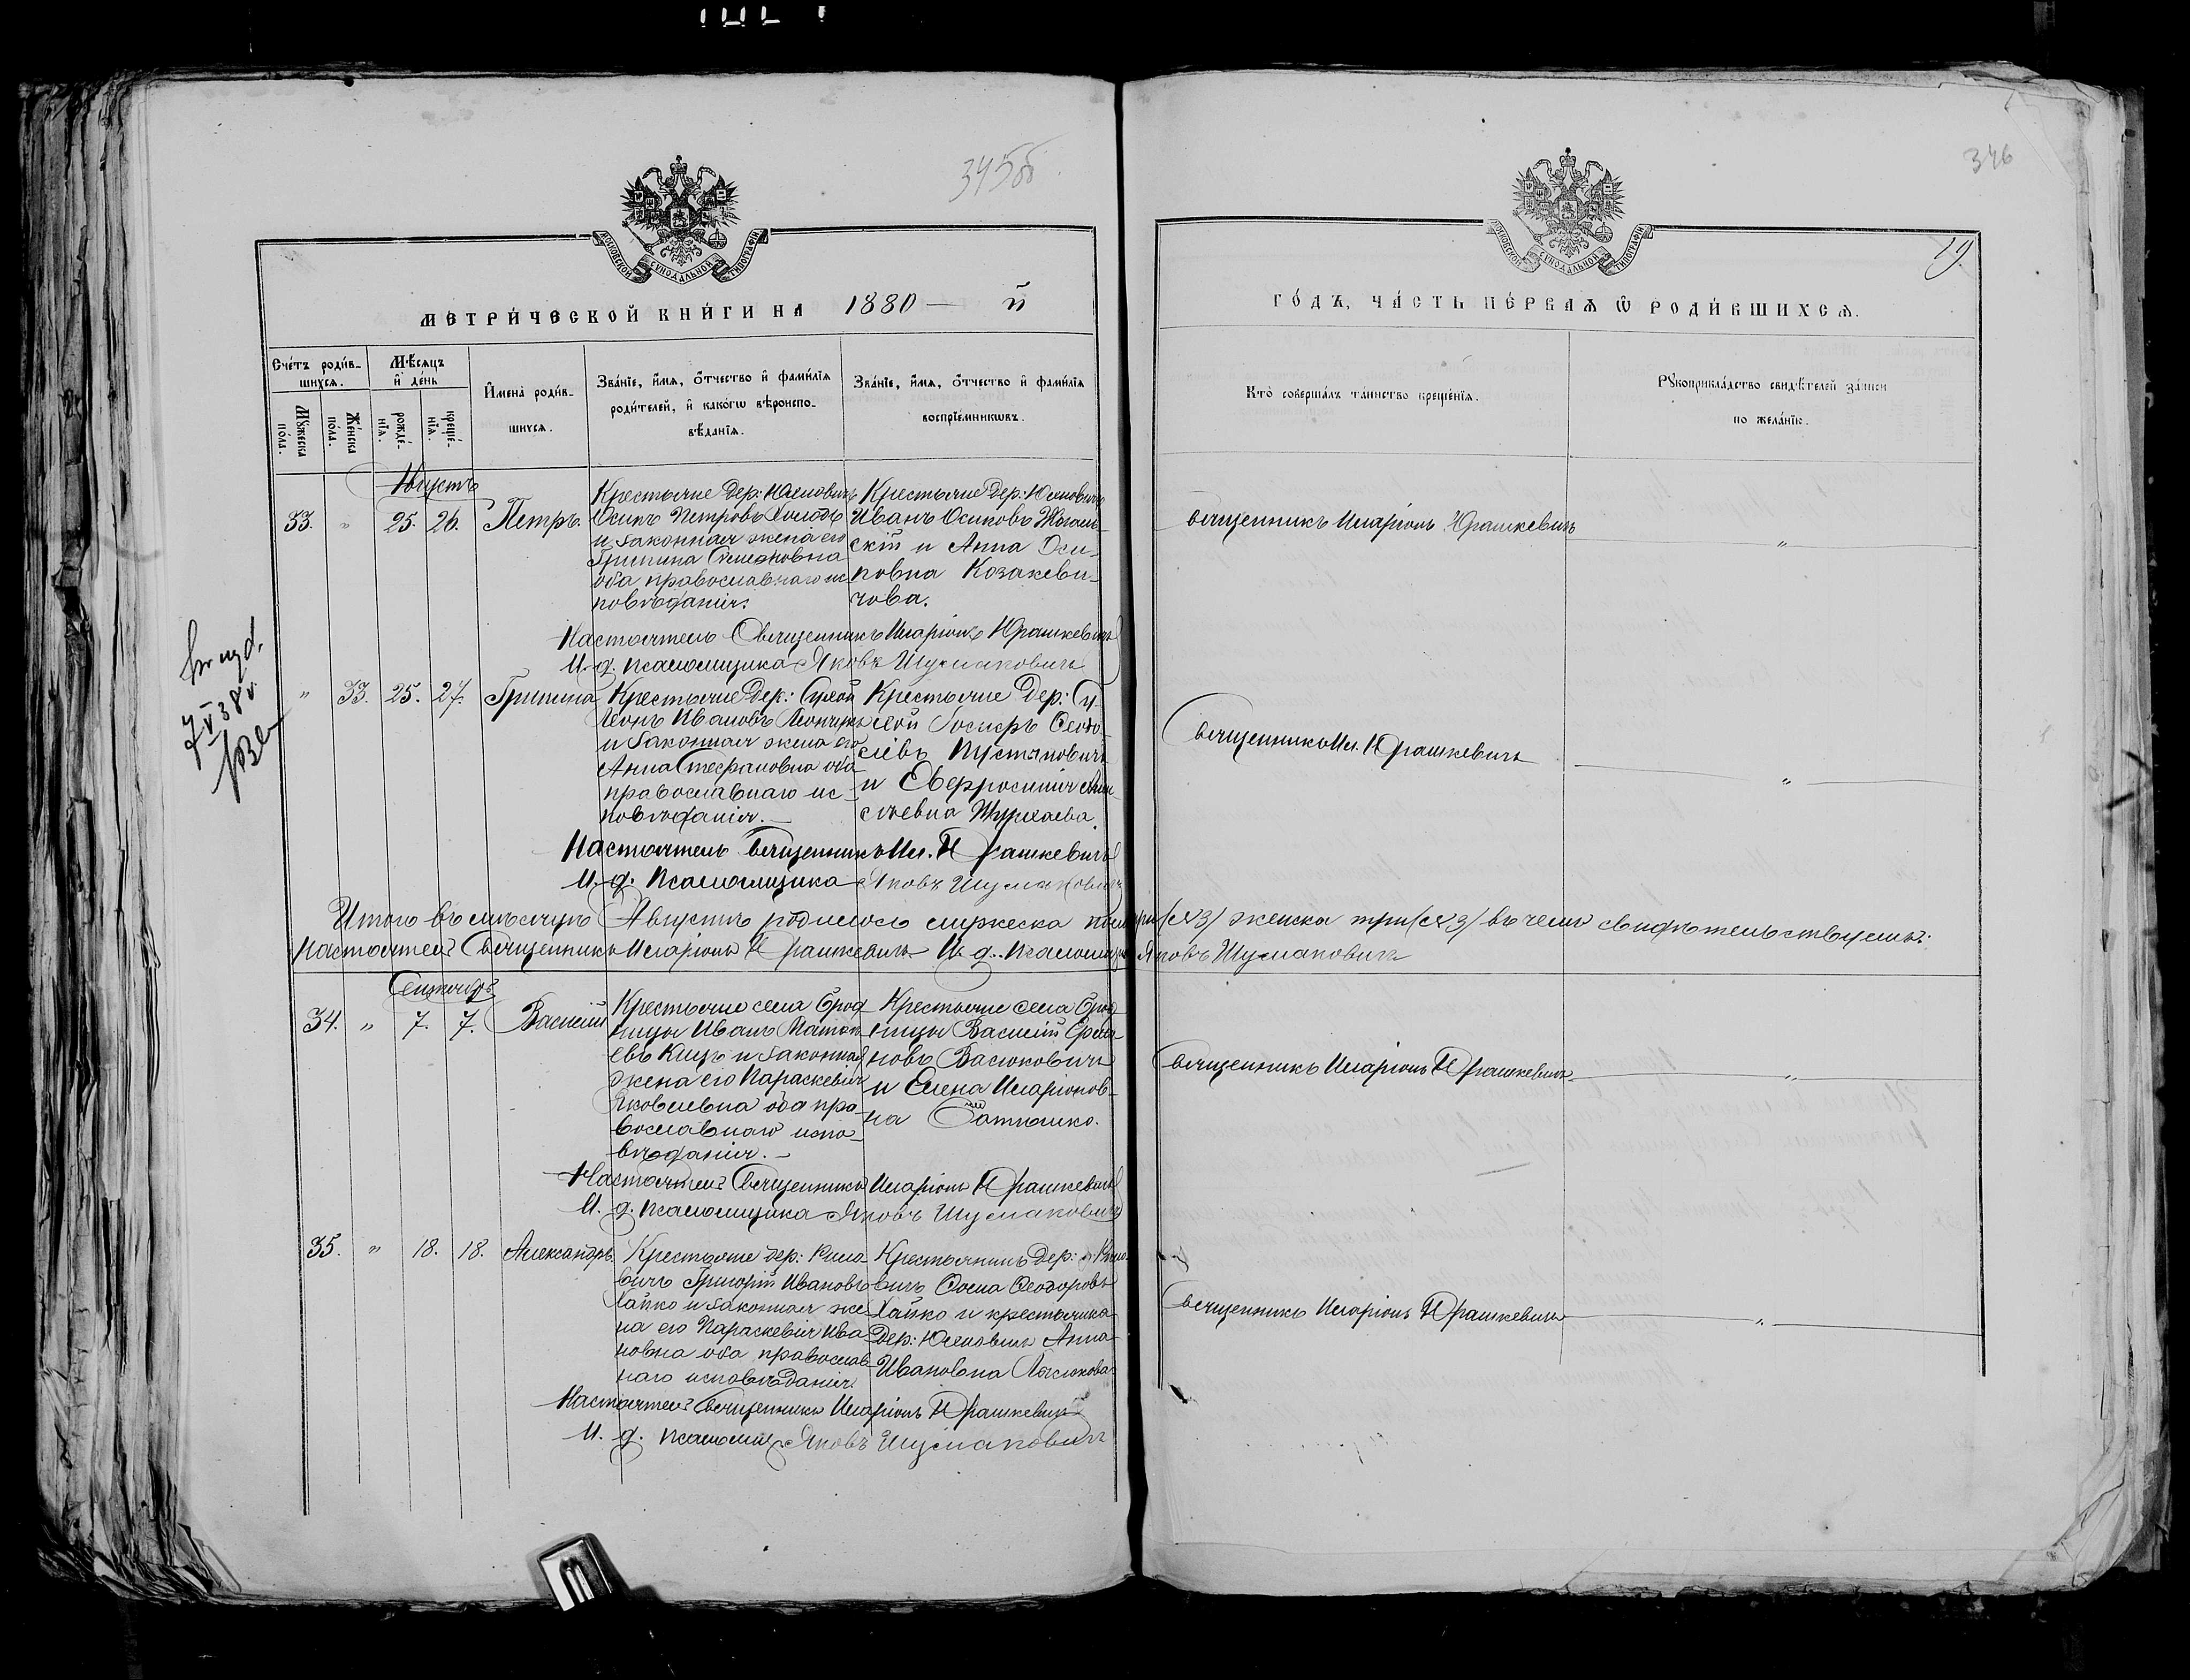 345об.
346
19.
МОСКОВСКОЙ СѴНОДАЛЬНОЙ ТИПОГРАФІИ
МОСКОВСКОЙ СѴНОДАЛЬНОЙ ТИПОГРАФІИ
МЕТРИ́ЧЕСКОЙ КНИ́ГИ НА 1880 — й
ГО́ДЪ, ЧА́СТЬ ПЕ́РВАѦ Ѡ РОДИ́ВШИХСѦ.
Сче́тъ роди́в-
шихсѧ.
Мꙋ́жеска
по́ла.
Же́нска
по́ла.
Мѣ́сѧцъ
и҆ де́нь
рожде́-
нїѧ.
креще́-
нїѧ.
И҆мена̀ роди́в-
шихсѧ.
Зва́нїе, и҆́мѧ, ѻ҆́тчество и҆ фами́лїѧ
роди́телей, и҆ како́гѡ вѣроиспо-
вѣ́данїѧ.
Зва́нїе, и҆́мѧ, ѻ҆́тчество и҆ фами́лїѧ
воспрїе́мникѡвъ.
Кто̀ соверша́лъ та́инство креще́нїѧ.
Рꙋкоприкла́дство свидѣ́телей за́писи
по жела́нїю.
Августъ
33. " 25. 26. Петръ.
Крестьяне дер: Юсковичъ
Осипъ Петровъ Холодъ
и законная жена его
Грипина Симеоновна
оба православнаго ис-
повѣданія.
Крестьяне дер: Юсковичъ
Иванъ Осиповъ
скій и Анна Оси-
повна Козакеви-
чова.
Священникъ Иларіонъ Юрашкевичъ "
Настоятель Священникъ Иларіонъ Юрашкевичъ
И. д. псаломщика Яковъ Шумаковичъ
" 33. 25. 27. Грипина
Крестьяне дер: Сухой
Леонъ Ивановъ
и законная жена его
Анна Стефановна оба
православнаго ис-
повѣданія. —
Крестьяне дер: Су-
хой
и Евфросинія
Священникъ Ил. Юрашкевичъ "
Настоятель Священникъ Ил. Юрашкевичъ
И. д. Псаломщика Яковъ Шумаковичъ
Итого въ мѣсяцѣ Августѣ родилось мужеска пола три (№ 3) женска три (№ 3) въ чемъ свидѣтельствуемъ:
Настоятел: Священникъ Иларіонъ Юрашкевичъ И. д. псаломщ. Яковъ Шумаковичъ
Сентябрь
34. " 7. 7. Василій
Крестьяне села Брод-
ницы Иванъ Матѳе-
евъ Кицъ и законная
жена его Параскевія
Яковлевна оба пра-
вославнаго испо-
вѣданія. —
Крестьяне села Брод-
ницы Василій
новъ Васюковичъ
и Елена Иларіонов-
на
Священникъ Иларіонъ Юрашкевичъ "
Настоятел: Священникъ Иларіонъ Юрашкевичъ
И. д. псаломщика Яковъ Шумаковичъ
35. " 18. 18. Александръ
Григорій Ивановъ
Хайко и законная же-
на его Параскевія Ива-
новна оба православ-
наго исповѣданія.
Крестьянинъ дер:
Ѳома Ѳеодоровъ
Хайко и крестьянка
дер: Юсковичъ Анна
Ивановна
Священникъ Иларіонъ Юрашкевичъ "
Настоятел: Священникъ Иларіонъ Юрашкевичъ
И. д. псаломщ. Яковъ Шумаковичъ